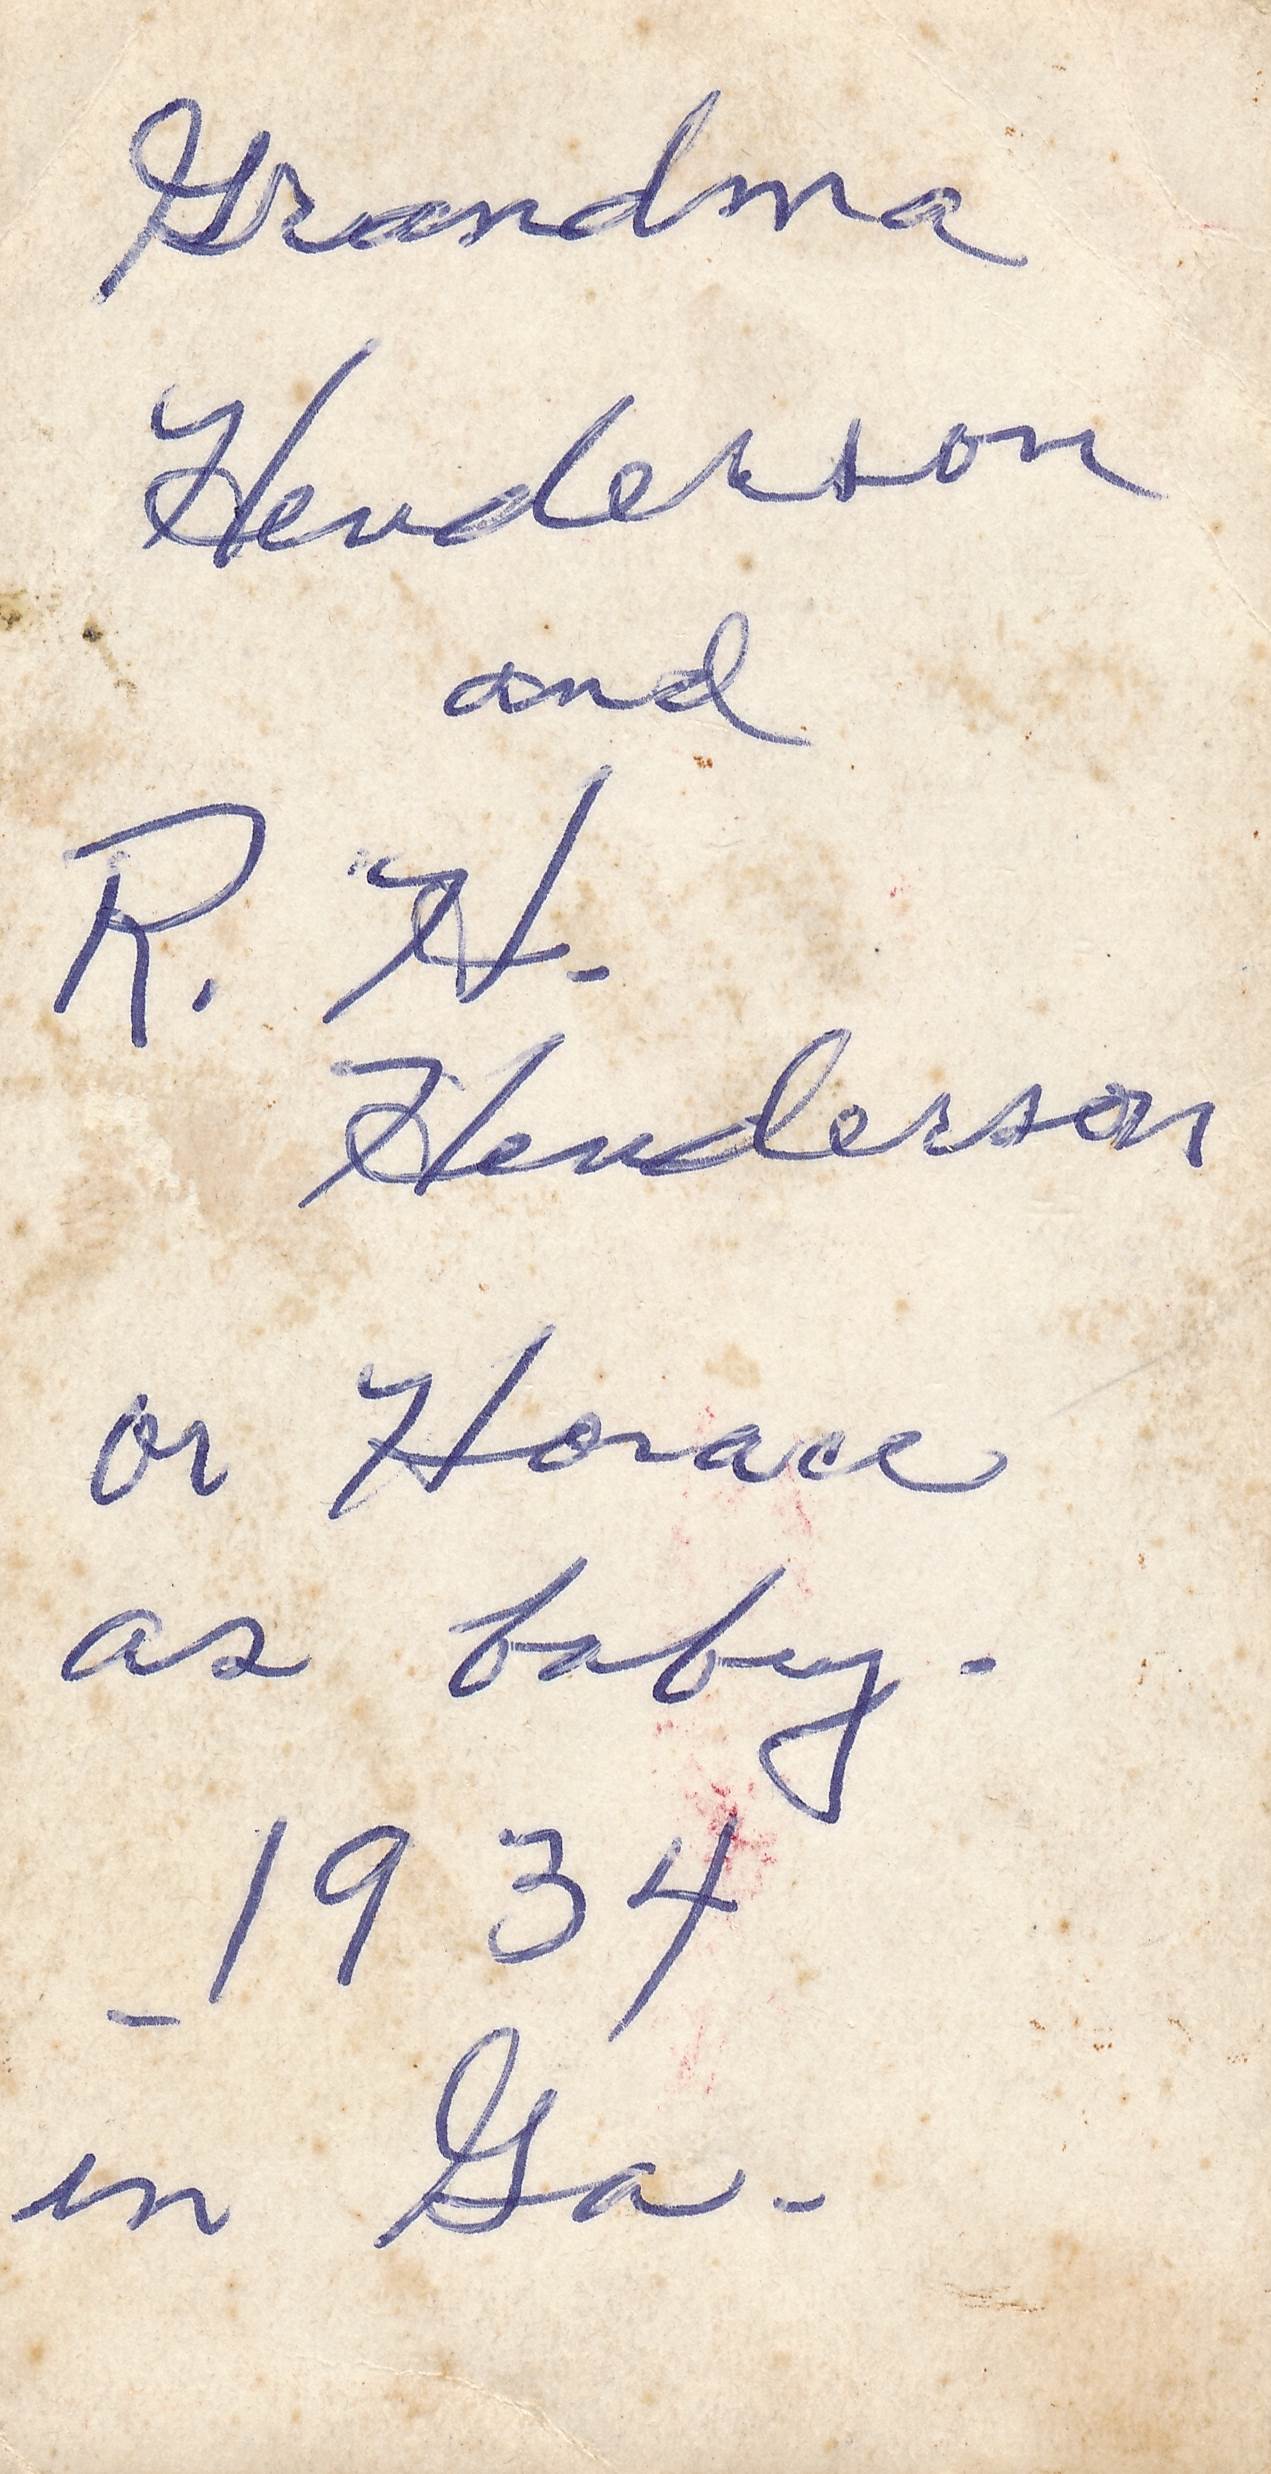 Grandma
Henderson
and
R. H.
Henderson
or Horace
as baby.
1934
in Ga.